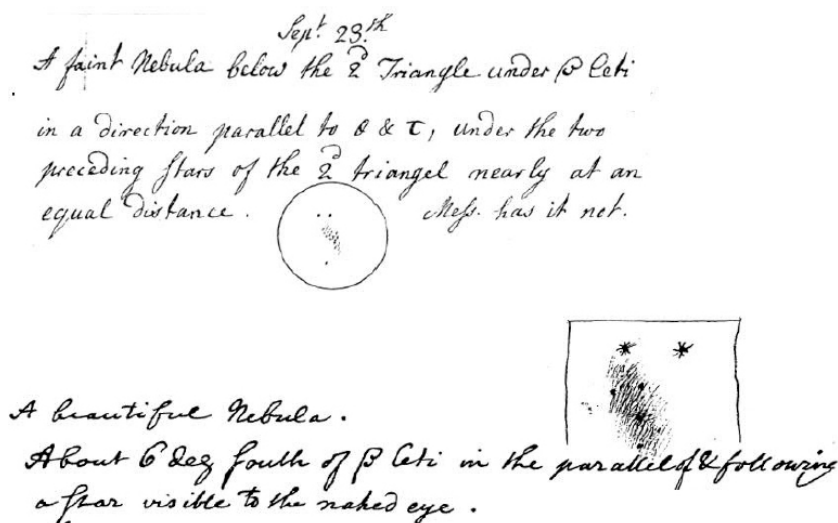 Sept. 23.th
A faint Nebula below the 2d Triangle under β Ceti
in a direction parallel to θ & τ, under the two
preceding stars of the 2d triangel nearly at an
equal distance. Mess. has it not.
A beautiful Nebula.
About 6 deg South of β Ceti in the parallel of & following
a star visible to the naked eye.